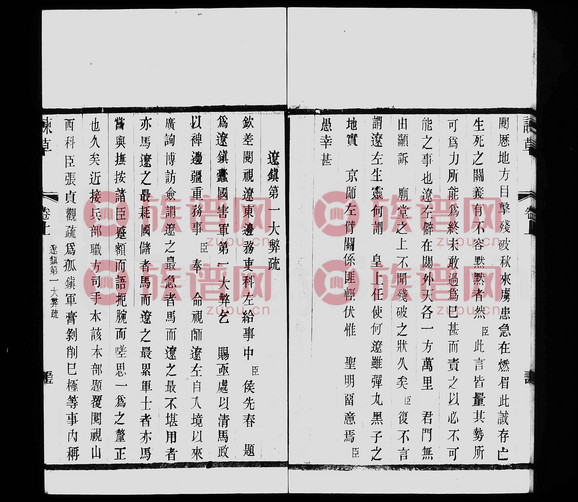 諫草
卷上
閱歷地方目擊殘破秋來虜患急在燃眉此誠存亡
生死之關義有不容默默者然臣此言皆量其勢所
可為力所能為終未敢過為已甚而責之以必不可
能之事也遼左僻在陽外大各一方萬里君門無
由顲訴廟堂之上不聞殘破之狀久矣臣復不言
謂遼左生靈何謂皇上任使何遼雖彈丸黑子之
地實京師左臂關係匪輕伏惟聖明留意焉臣
愚幸甚
遼鎮第一大弊疏
欽差閱視遼東邊務吏科左給事中臣侯先春題
為遼鎮蠹國害軍第一大弊乞賜亟處以清馬政
以裨邊疆重務事臣奉命視師遼左自入境以來
廣詢博訪僉謂遼之最急者馬而遼之最不堪用者
亦馬遼之最耗國儲者馬而遼之最累軍士者亦馬
嘗與撫按諸臣蹙頞而語扼腕而嗟思一為之釐正
也久矣近接兵部職方司手本該本部題覆閱視山
西科臣張貞觀疏為孤鎮軍膏剝削已極等事內稱
諫草
卷上
遼鎮第一大弊疏
族谱网
zupu.cn